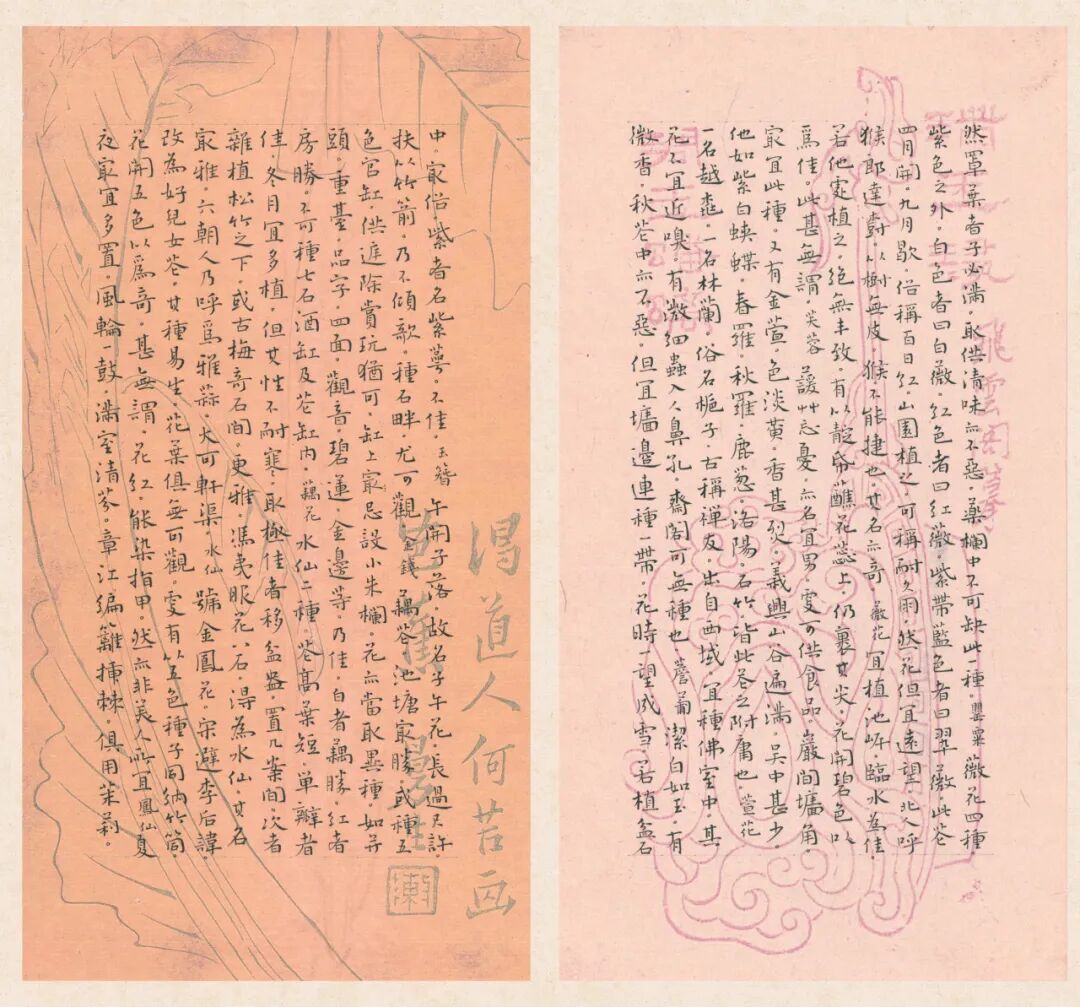 然單葉者子必滿。取供清味亦不惡。藥欄中不可缺此一種。罌粟 薇花四種。
紫色之外。白色者曰白薇。紅色者曰紅薇。紫帶藍色者曰翠薇。此花
四月開。九月歇。俗稱百日紅。山園植之。可稱耐久朋。然花但宜遠望。北人呼
猴郎達樹。以樹無皮。猴不能捷也。其名亦奇。薇花 宜植池岸。臨水為佳。
若他處植之。絕無丰致。有以靛帋蘸花蕊上。仍裹其尖。花開碧色。以
爲佳。此甚無謂。芙蓉 諼艸忘憂。亦名宜男。更可供食品。巖間墻角
最宜此種。又有金萱。色淡黃。香甚烈。義興山谷遍滿。吳中甚少。
他如紫白蛺蝶。春羅。秋羅。鹿葱。洛陽。石竹。皆此花之附庸也 萱花
一名越桃。一名林蘭。俗名梔子。古稱禪友。出自西域。宜種佛室中。其
花不宜近嗅。有微細蟲入人鼻孔。齋閣可無種也。薝蔔 潔白如玉。有
微香。秋花中亦不惡。但宜墻邊連種一帶。花時一望成雪。若植盆石
中。最俗。紫者名紫萼。不佳。玉簪 午開子落。故名子午花。長過尺許。
扶以竹箭。乃不傾欹。種石畔。尤可觀 金錢 藕花。池塘最勝。或種五
色官缸。供庭除賞玩猶可。缸上最忌設小朱欄。花亦當取異種。如並
頭。重臺。品字。四面。觀音。碧蓮。金邊等。乃佳。白者藕勝。紅者
房勝。不可種七石酒缸及花缸內。藕花 水仙二種。花高葉短。單瓣者
佳。冬月宜多植。但其性不耐寒。取極佳者移盆盎。置几案間。次者
雜植松竹之下。或古梅奇石間。更雅。馮夷服花八石。得為水仙。其名
最雅。六朝人乃呼爲雅蒜。大可軒渠。水仙 號金鳳花。宋避李后諱。
改為好兒女花。其種易生。花葉俱無可觀。更有以五色種子同納竹筒。
花開五色。以爲奇。甚無謂。花紅。能染指甲。然亦非美人所宜 鳳仙 夏
夜最宜多置。風輪一鼓。滿室清芬。章江編籬插棘。俱用茉莉。
道人何苦画